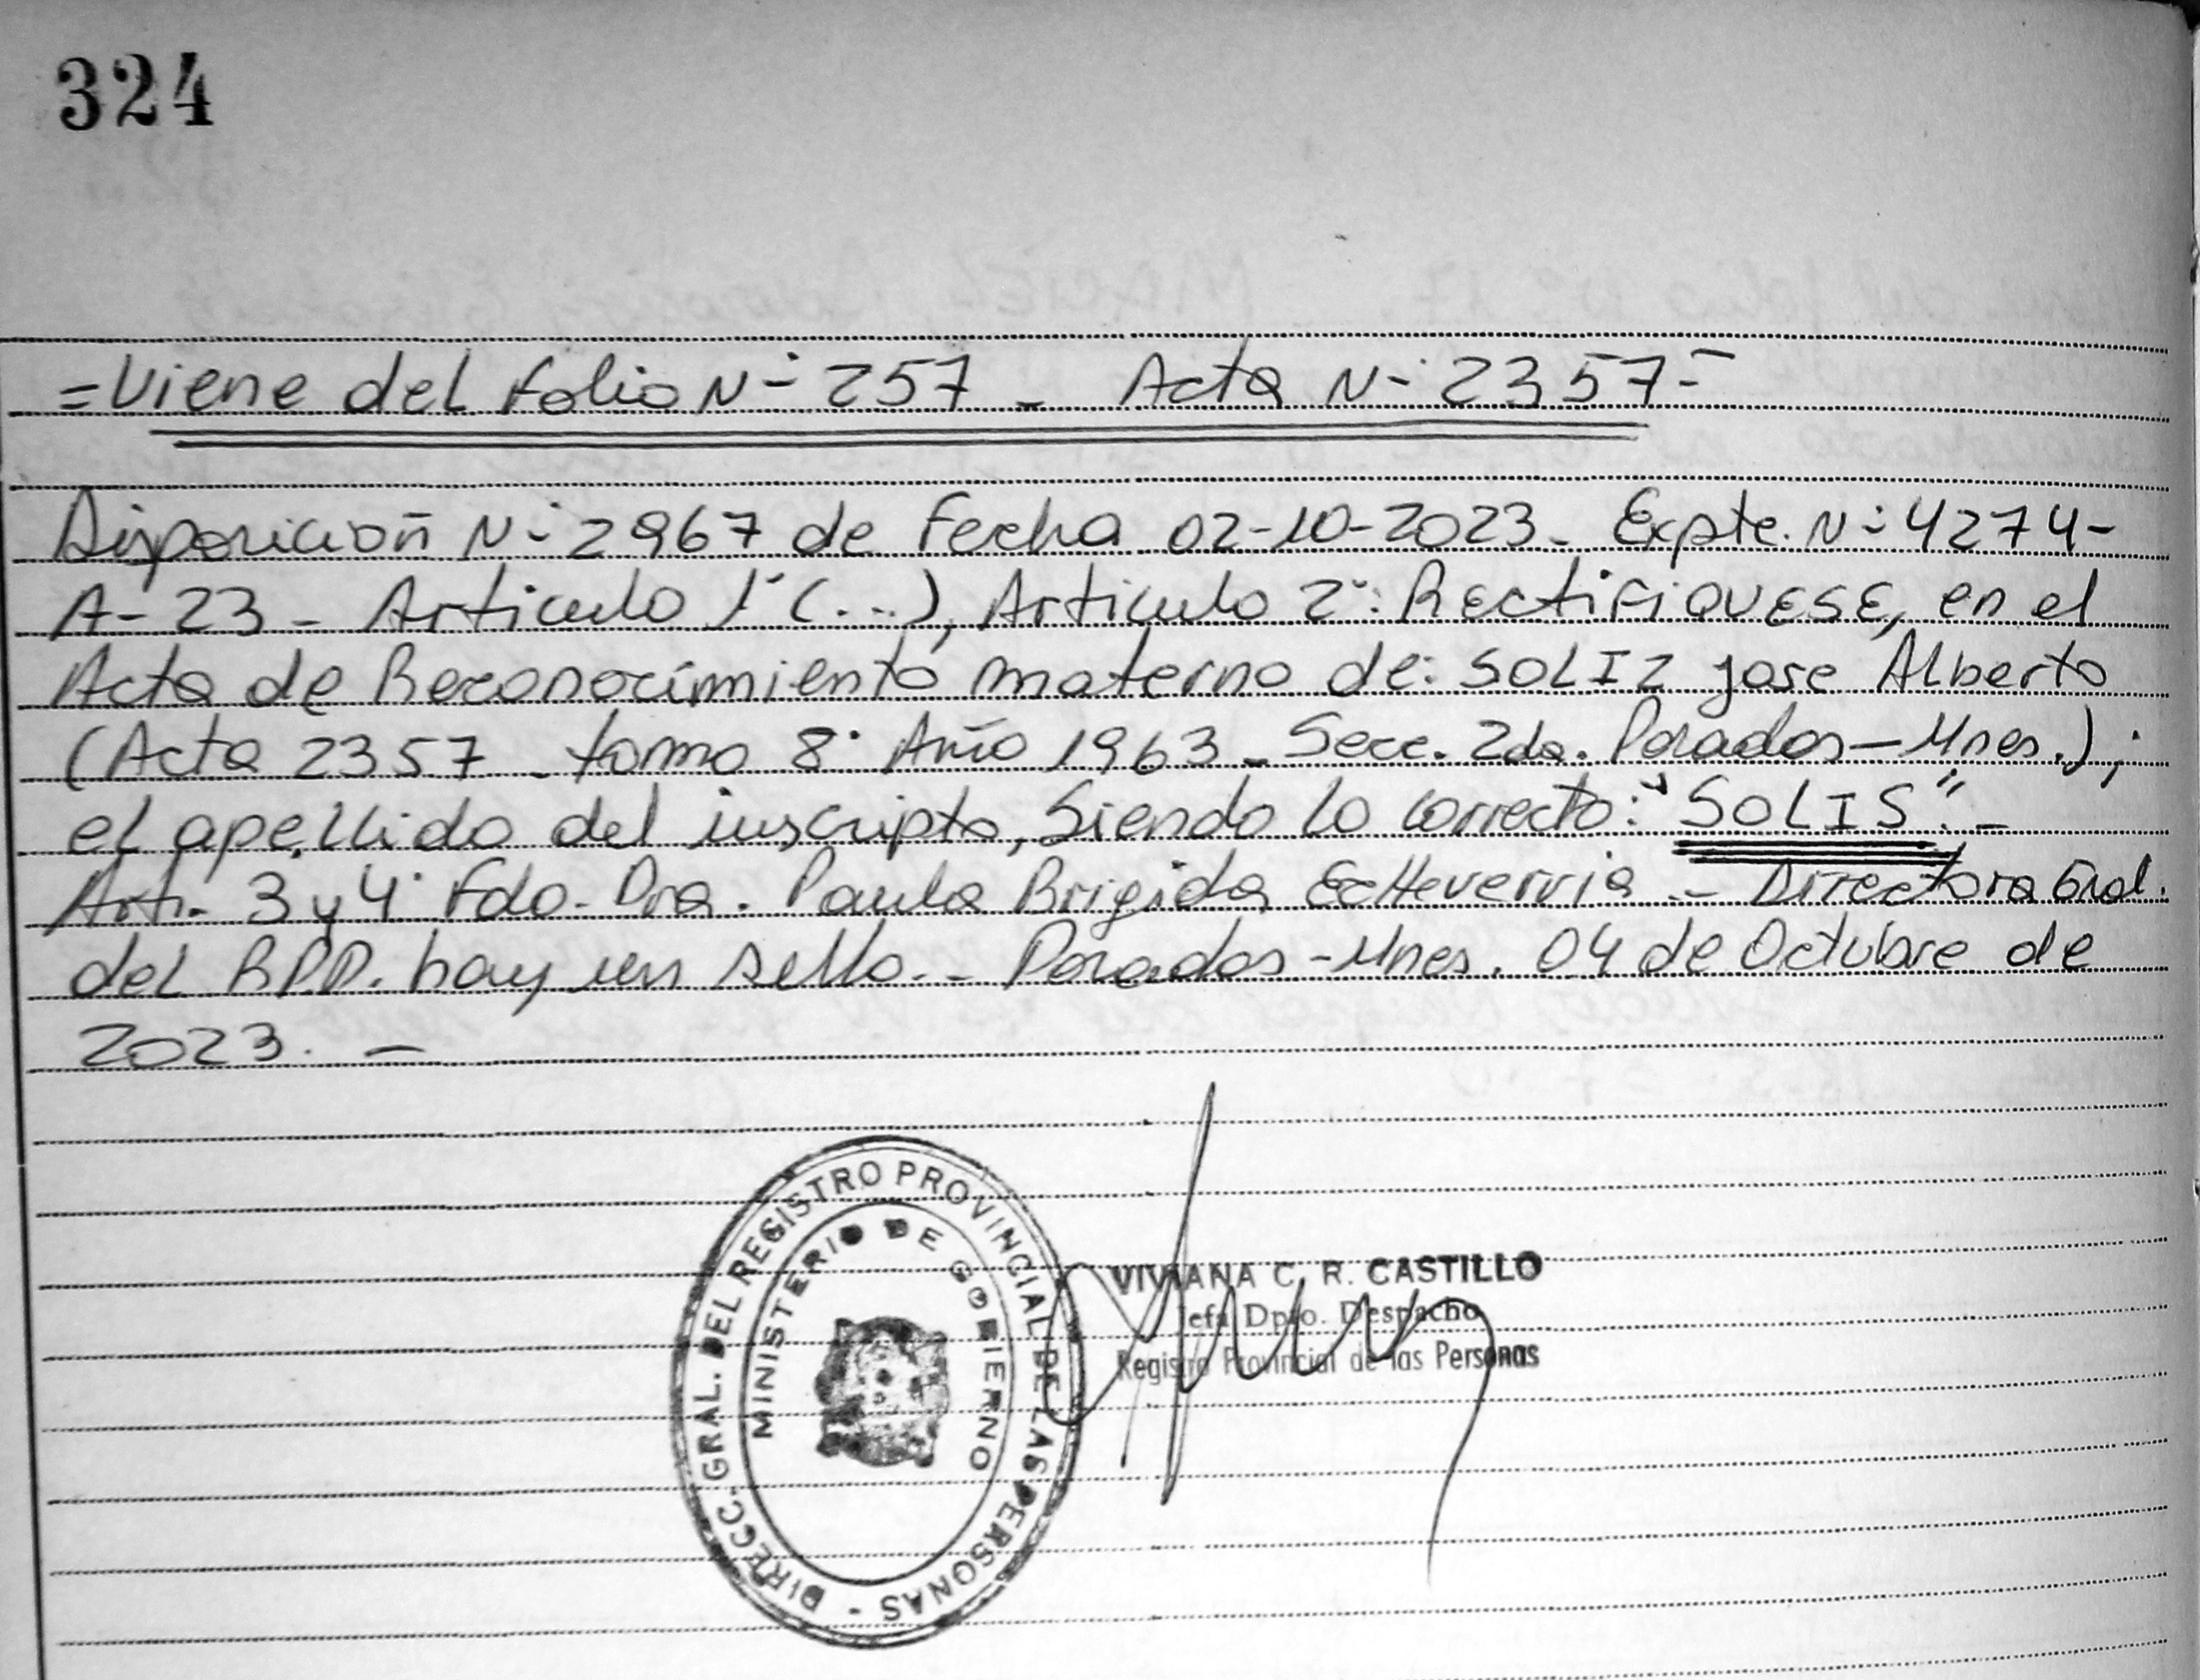 324
=Viene del folio N° 257 - Acta N° 2357-
Disposición N° 2967 de Fecha 02-10-2023- Expte. N° 4274-
A-23- Articulo 1° (...), Articulo 2°: RECTIFIQUESE, en el
Acta de Reconocimiento materno de: SOLIZ Jose Alberto
(Acta 2357 - tomo 8° Año 1963 - Secc. 2da. Posadas-Mnes.);
el apellido del inscripto, Siendo lo correcto: "SOLIS".-
Art. 3 y 4° Fdo. Dra. Paula Brigida Etcheverria - Directora Gral.
del R.P.P. hay un sello.- Posadas-Mnes. 04 de Octubre de
2023. -
DIRECC. GRAL. DEL REGISTRO PROVINCIAL DE LAS PERSONAS -
MINISTERIO DE GOBIERNO
VIVIANA C. R. CASTILLO
Jefa Dpto. Despacho
Registro Provincial de las Personas